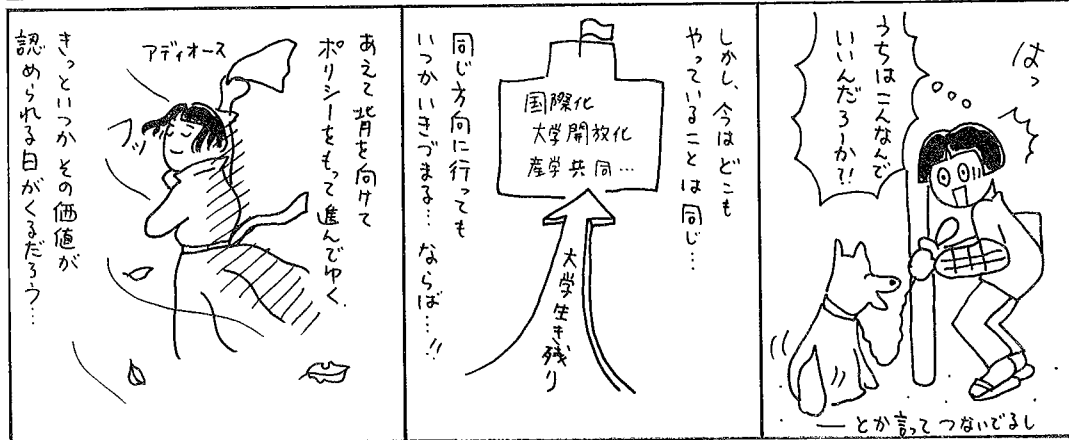 はっ
うちはこんなんで
いいんだろーか?!
── とか言ってつないでるし
しかし、今はどこも
やっていることは同じ…
国際化
大学開放化
産学共同…
大学生き残り
同じ方向に行っても
いつかいきづまる…ならば…!!
あえて背を向けて
ポリシーをもって進んでゆく
アディオース
フッ
きっといつかその価値が
認められる日がくるだろう…